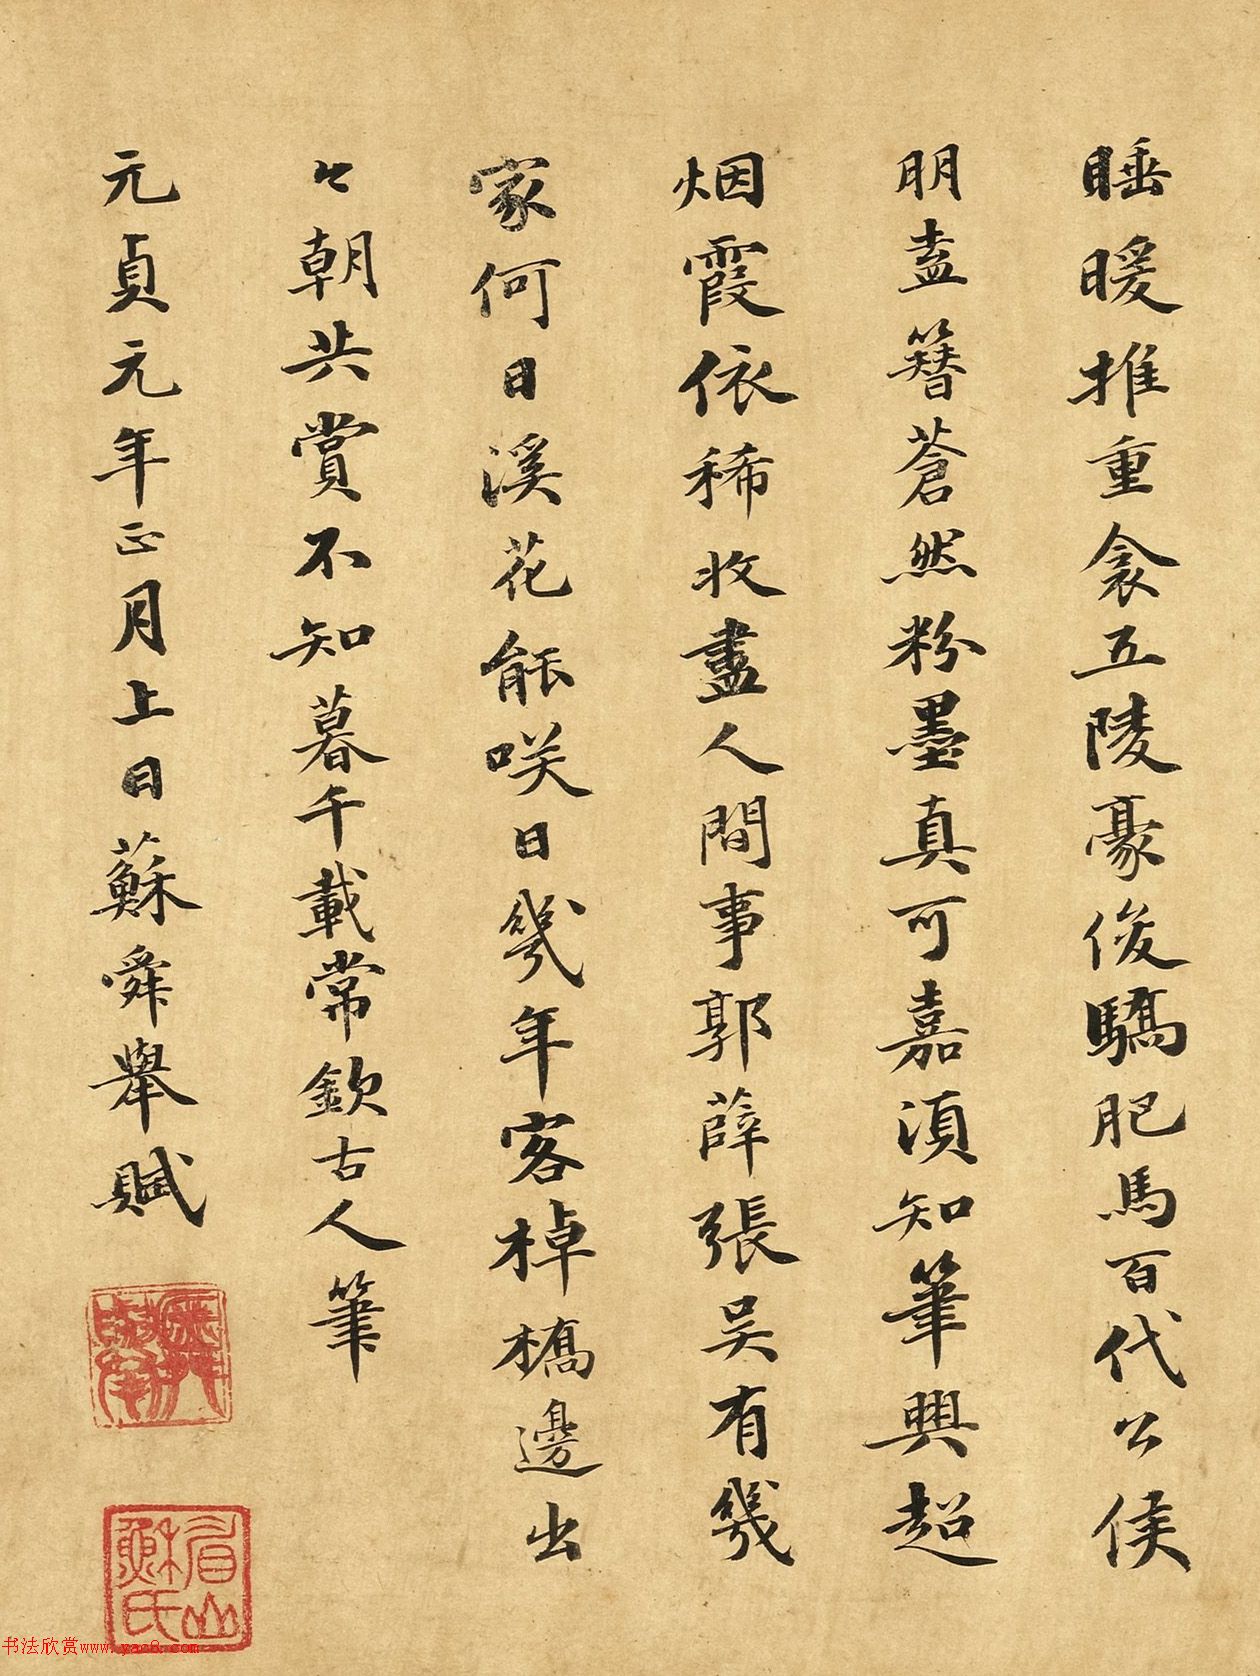 睡暖推重衾五陵豪俊驕肥馬百代公侯
朋盍簪蒼然粉墨真可嘉須知筆興超
烟霞依稀收盡人間事郭薛張吴有幾
家何日溪花能咲日幾年客棹橋邊出
々朝共賞不知暮千載常欽古人筆
元貞元年正月上日蘇舜舉賦
眉山蘇氏
书法欣赏www.yac8.com